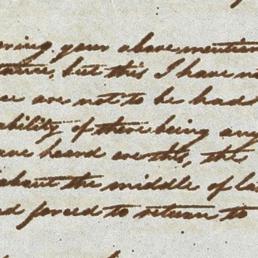 your above mention
but this I have no
are not to be had
ability of there being any
heard are this, the
about the middle of la
forced to return to